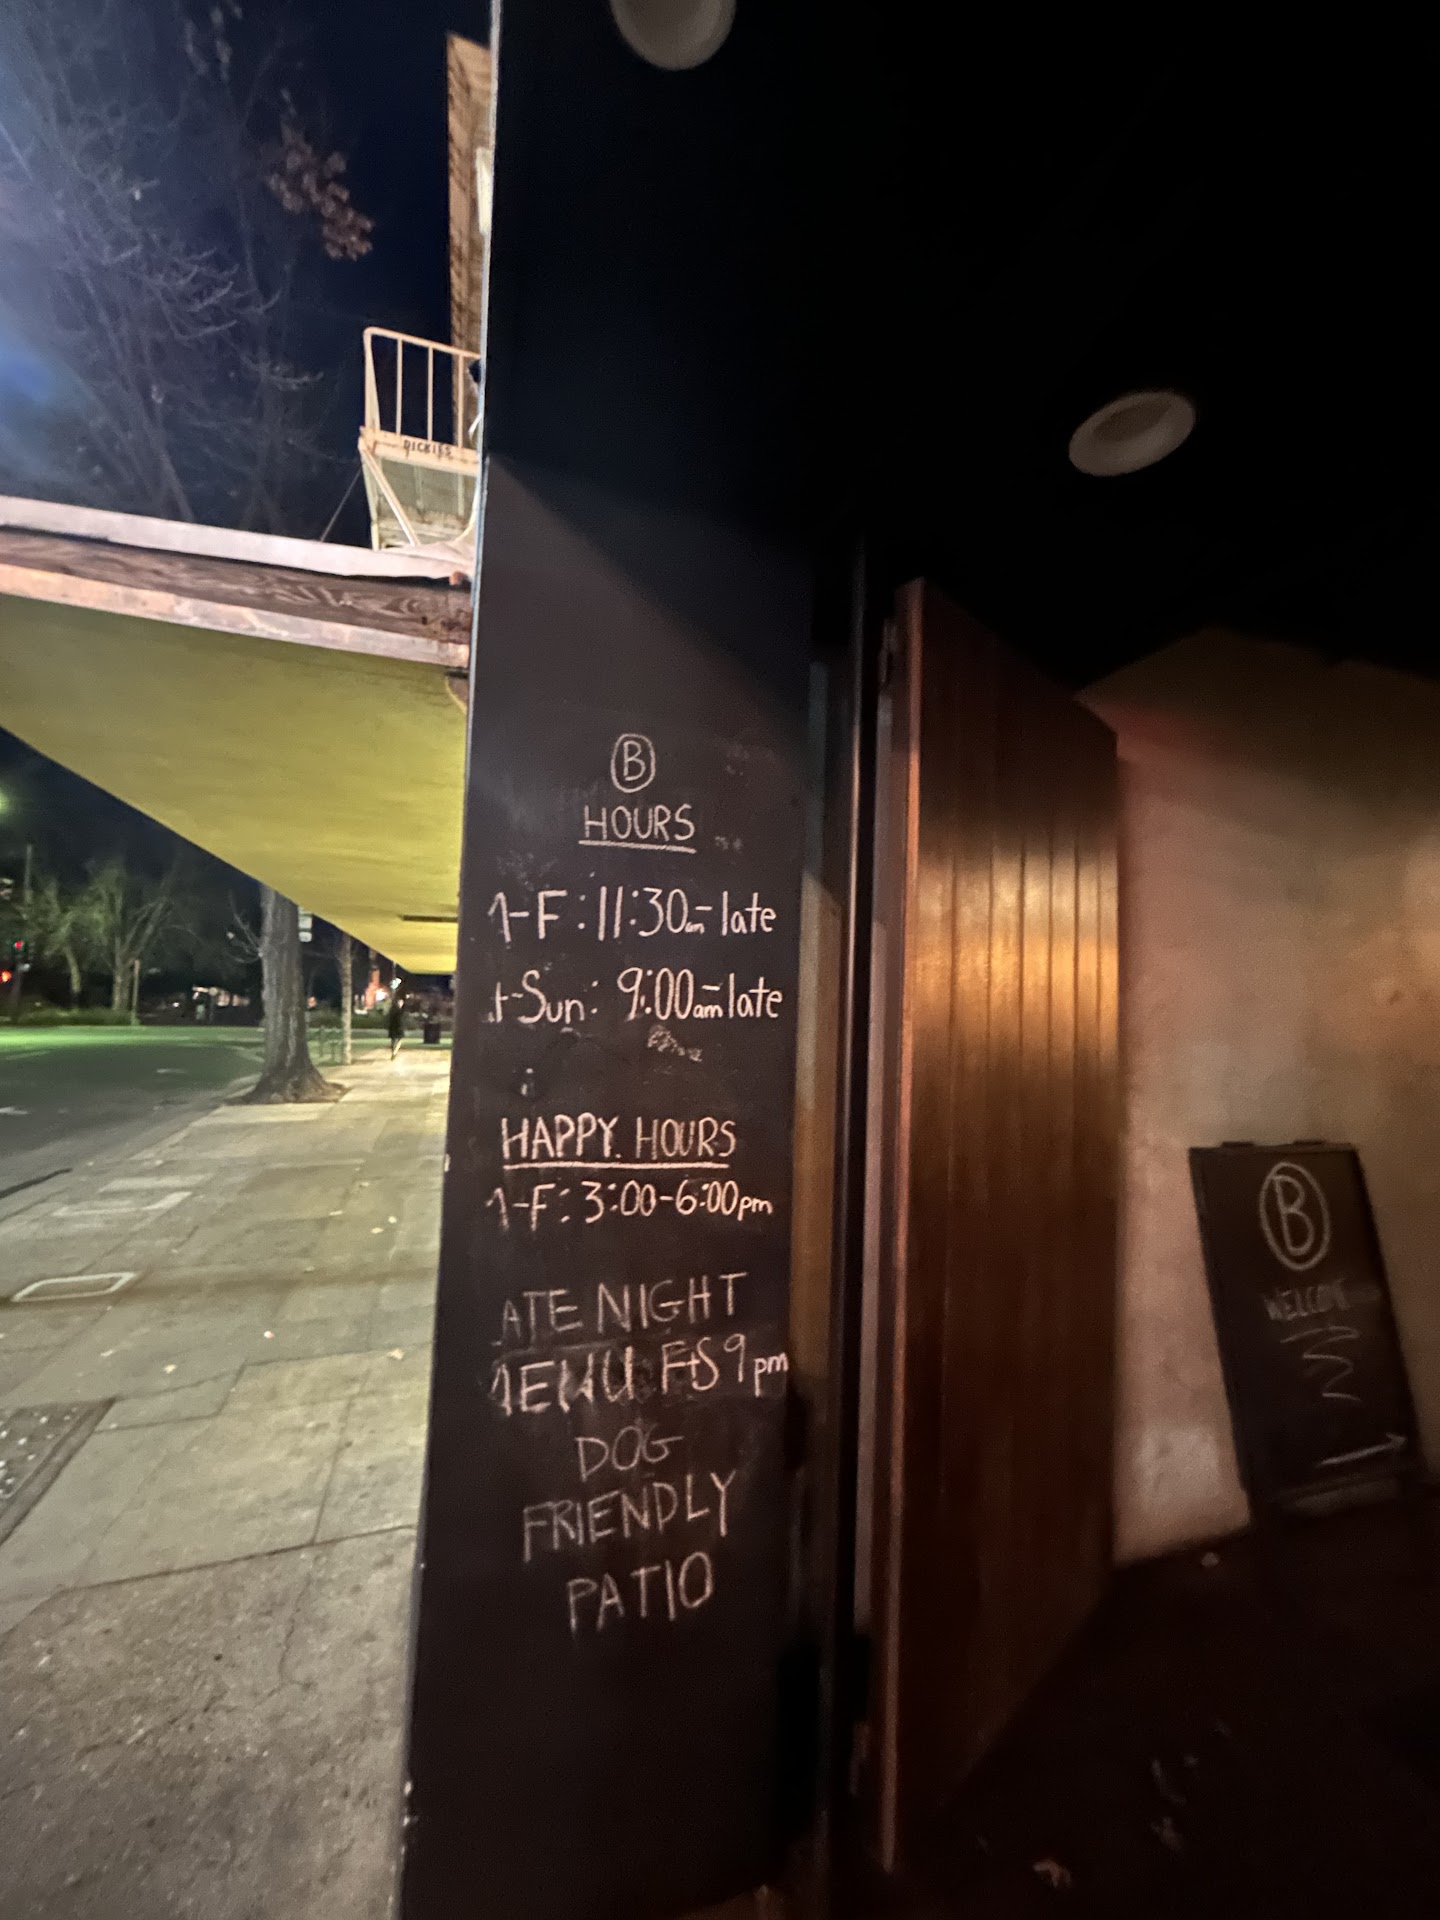 DICKIES
B
HOURS
M-F: 11:30am-late
t-Sun: 9:00am-late
HAPPY HOURS
M-F: 3:00-6:00pm
ATE NIGHT
MENU F+S 9pm
DOG
FRIENDLY
PATIO
B
WELCOME